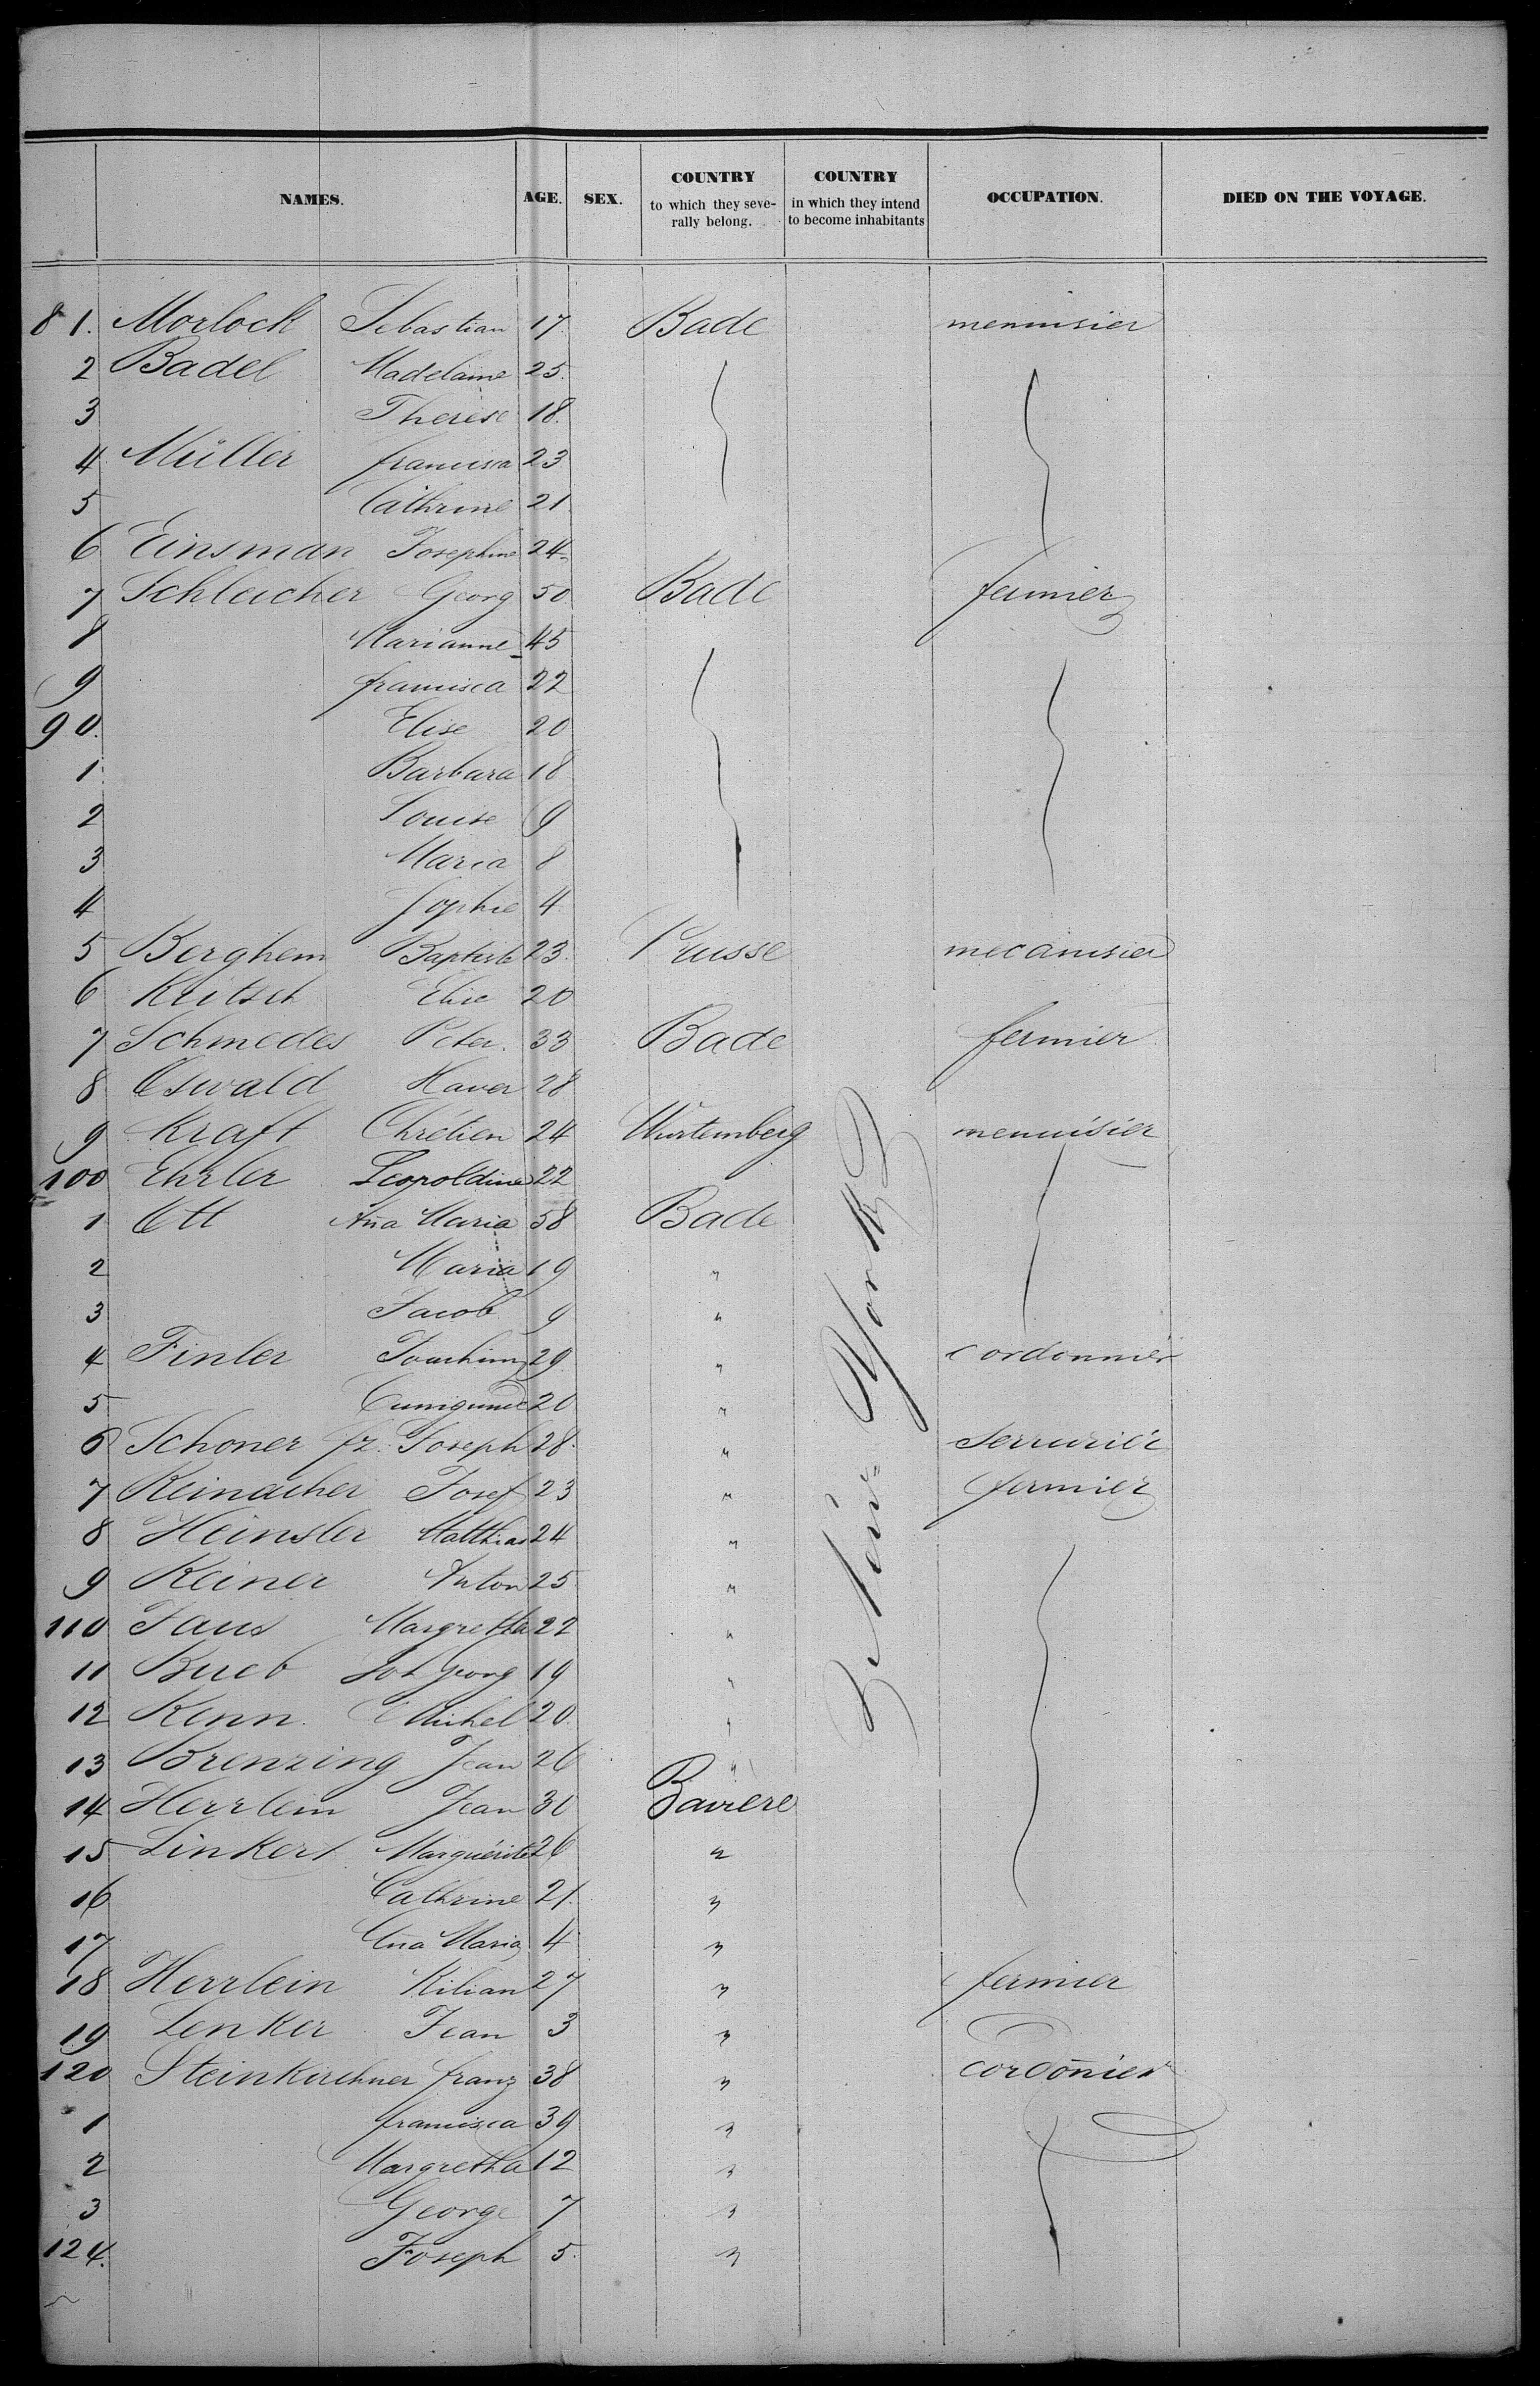 NAMES. AGE. SEX. COUNTRY to which they seve-rally belong. COUNTRY in which they intend to become inhabitants OCCUPATION. DIED ON THE VOYAGE.
81. Morlock Sebastian 17. Bade menuisier
2 Badel Madelaine 25.
3 Therese 18.
4 Müller francisca 23
5 Cathrine 21
6 Einsman Josephine 24
7 Schleicher Georg 50 Bade fermier
8 Marianne 45
9 francisca 22
90. Elise 20
1. Barbara 18
2 Louise 9
3 Maria 8
4 Sophie 4
5 Berghem Baptiste 23. Prusse mecanisien
6 Kritsch Elise 20
7 Schmedes Peter. 33 Bade fermier
8 Oswald Xaver 28
9 Kraft Chrétien 24 Würtemberg menuisier
100 Ehrler Leopoldine 22
1 Ott Aña Maria 58 Bade
2 Maria 19 "
3 Jacob 9 "
4 Finler Joachim 29 " cordonnier
5 Cunigunde 20 "
6 Schoner fz. Joseph 28. " Serrurier
7 Reinacher Josef 23 " fermier
8 Heinsler Matthias 24 "
9 Reiner Anton 25 "
110 Jaus Margretha 22 "
11 Bueb Joh Georg 19 "
12 Renn. Michel 20. "
13 Brenzing Jean 26 "
14 Herrlein Jean 30 Baviere
15 Linkert Marguérite 26 "
16 Cathrine 21. "
17 Aña Maria 4 "
18 Herrlein Kilian 27 " fermier
19 Lenker Jean 3 "
120 Steinkirchner franz 38 " cordoñier
1 francisca 39 "
2 Margretha 12 "
3 George 7 "
124. Joseph 5. "
New-York